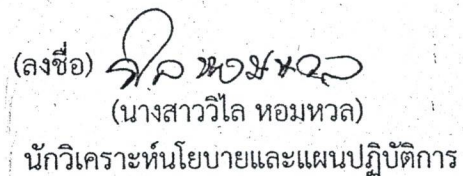 (ลงชื่อ) วิไล หอมหวล
(นางสาววิไล หอมหวล)
นักวิเคราะห์นโยบายและแผนปฏิบัติการ